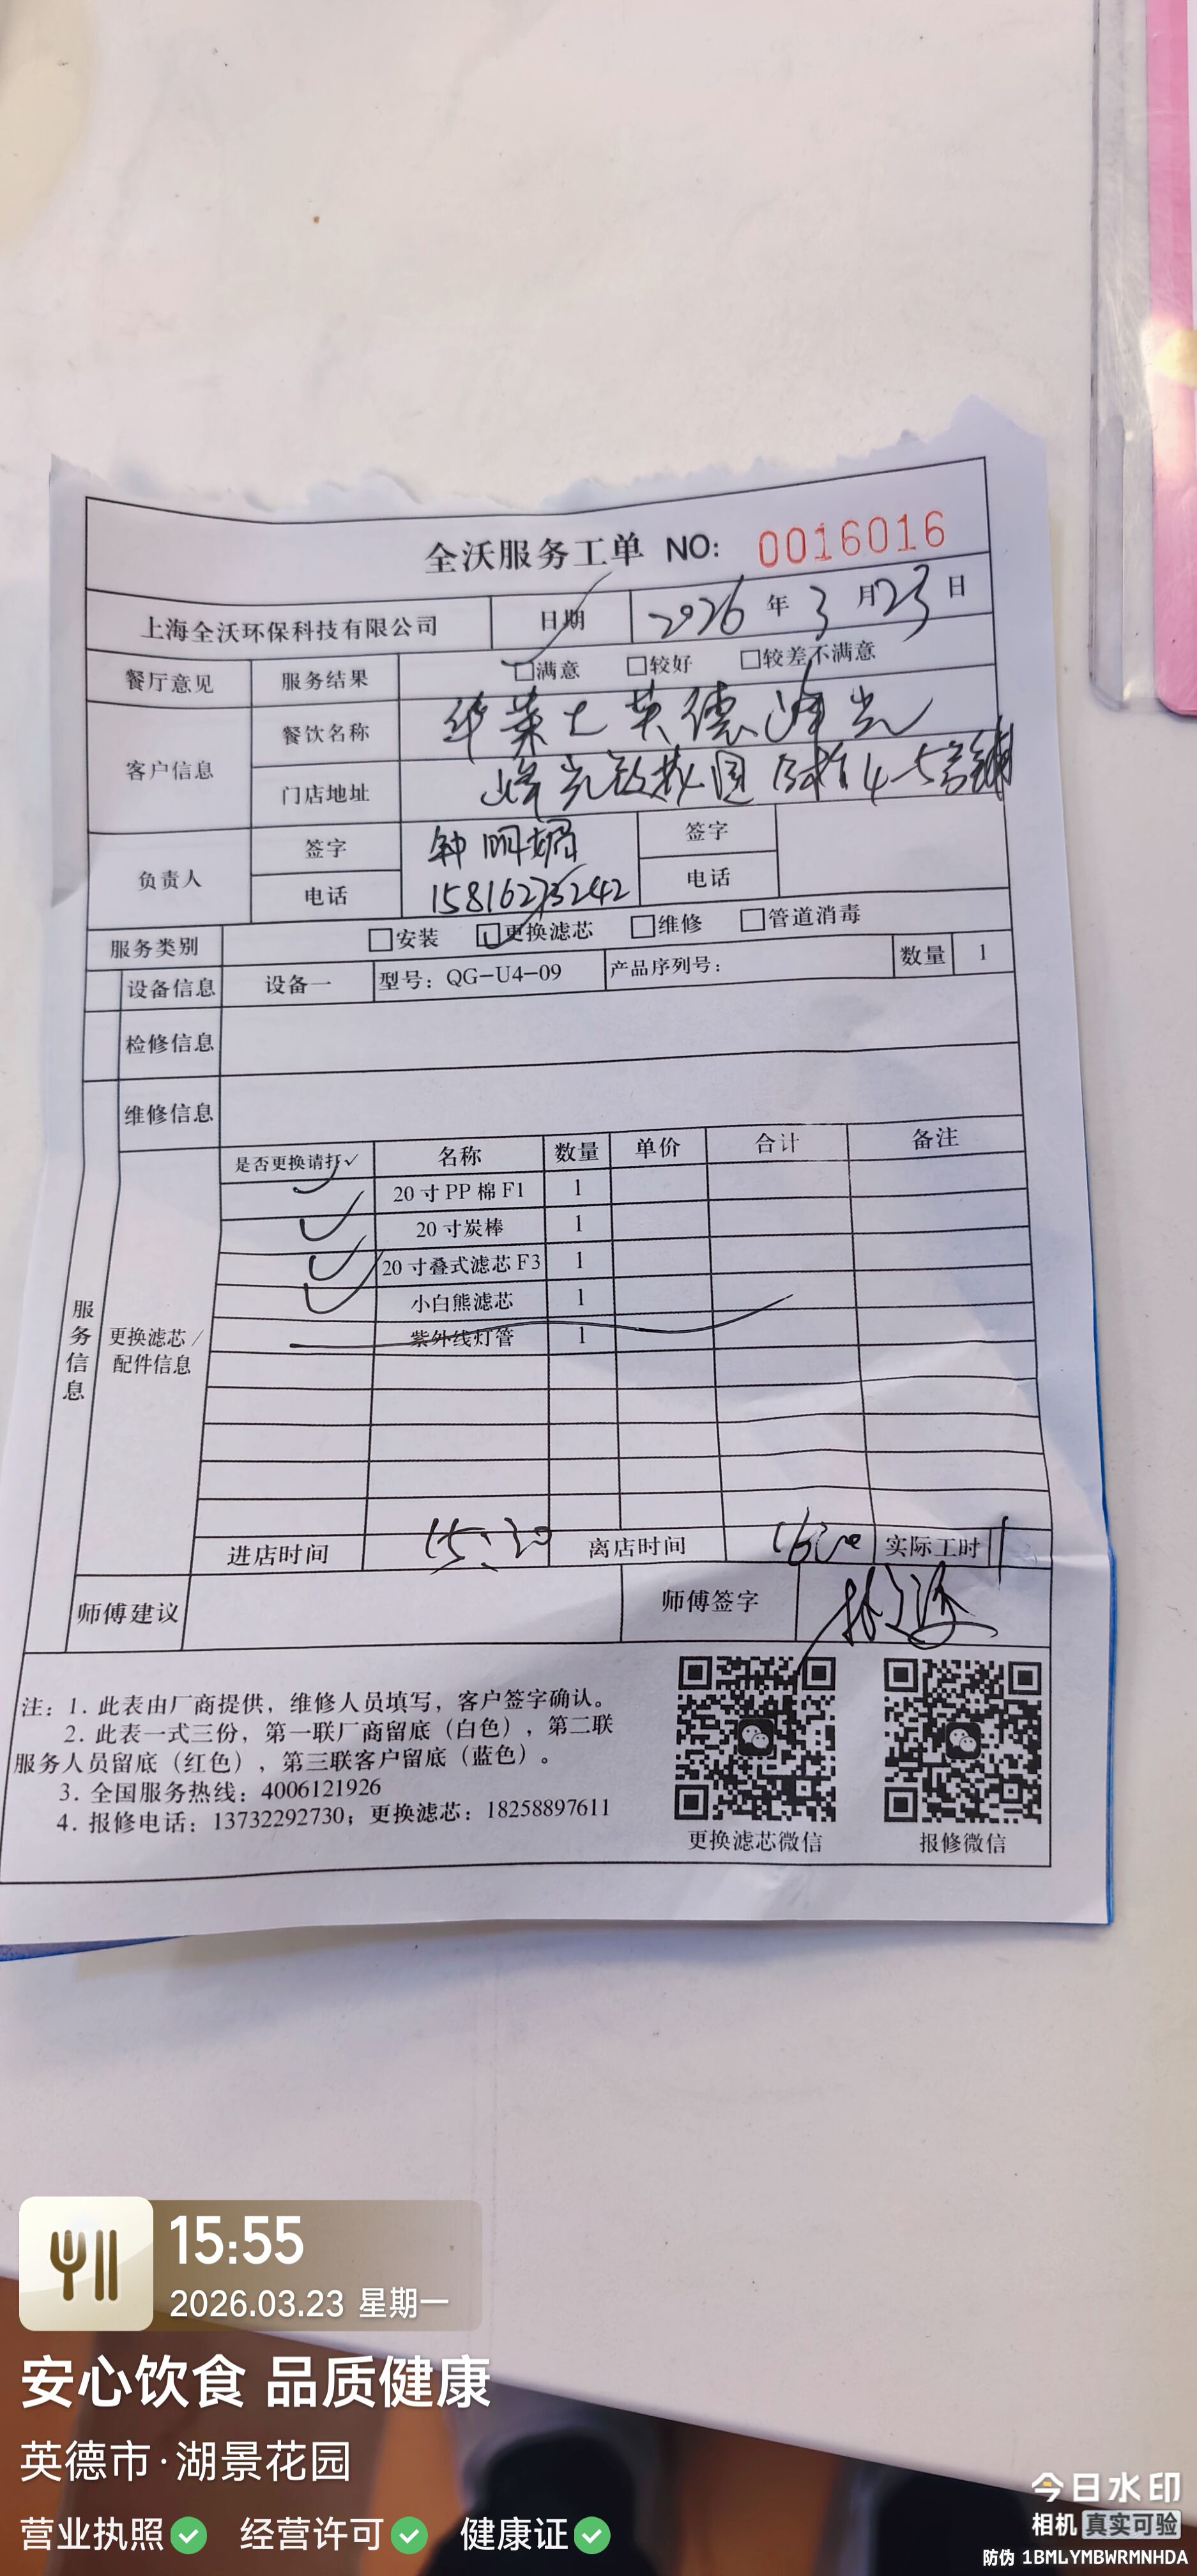 全沃服务工单 NO: 0016016
上海全沃环保科技有限公司 日期 2026 年 3 月 23 日
餐厅意见 服务结果 □满意 □较好 □较差不满意
客户信息 餐饮名称 华莱士英德峰光
门店地址 峰光 园 4-5号铺
负责人 签字 钟明媚 签字
电话 15816275242 电话
服务类别 □安装 □更换滤芯 □维修 □管道消毒
设备信息 设备一 型号：QG-U4-09 产品序列号： 数量 1
检修信息
维修信息
服务信息
更换滤芯/配件信息
是否更换请打✓ 名称 数量 单价 合计 备注
✓ 20寸PP棉F1 1
✓ 20寸炭棒 1
✓ 20寸叠式滤芯F3 1
✓ 小白熊滤芯 1
紫外线灯管 1
进店时间 15:30 离店时间 16:00 实际工时 1
师傅建议 师傅签字
注：1. 此表由厂商提供，维修人员填写，客户签字确认。
2. 此表一式三份，第一联厂商留底（白色），第二联
服务人员留底（红色），第三联客户留底（蓝色）。
3. 全国服务热线：4006121926
4. 报修电话：13732292730；更换滤芯：18258897611
更换滤芯微信 报修微信
15:55
2026.03.23 星期一
安心饮食 品质健康
英德市·湖景花园
营业执照 经营许可 健康证
今日水印
相机 真实可验
防伪 1BMLYMBWRMNHDA